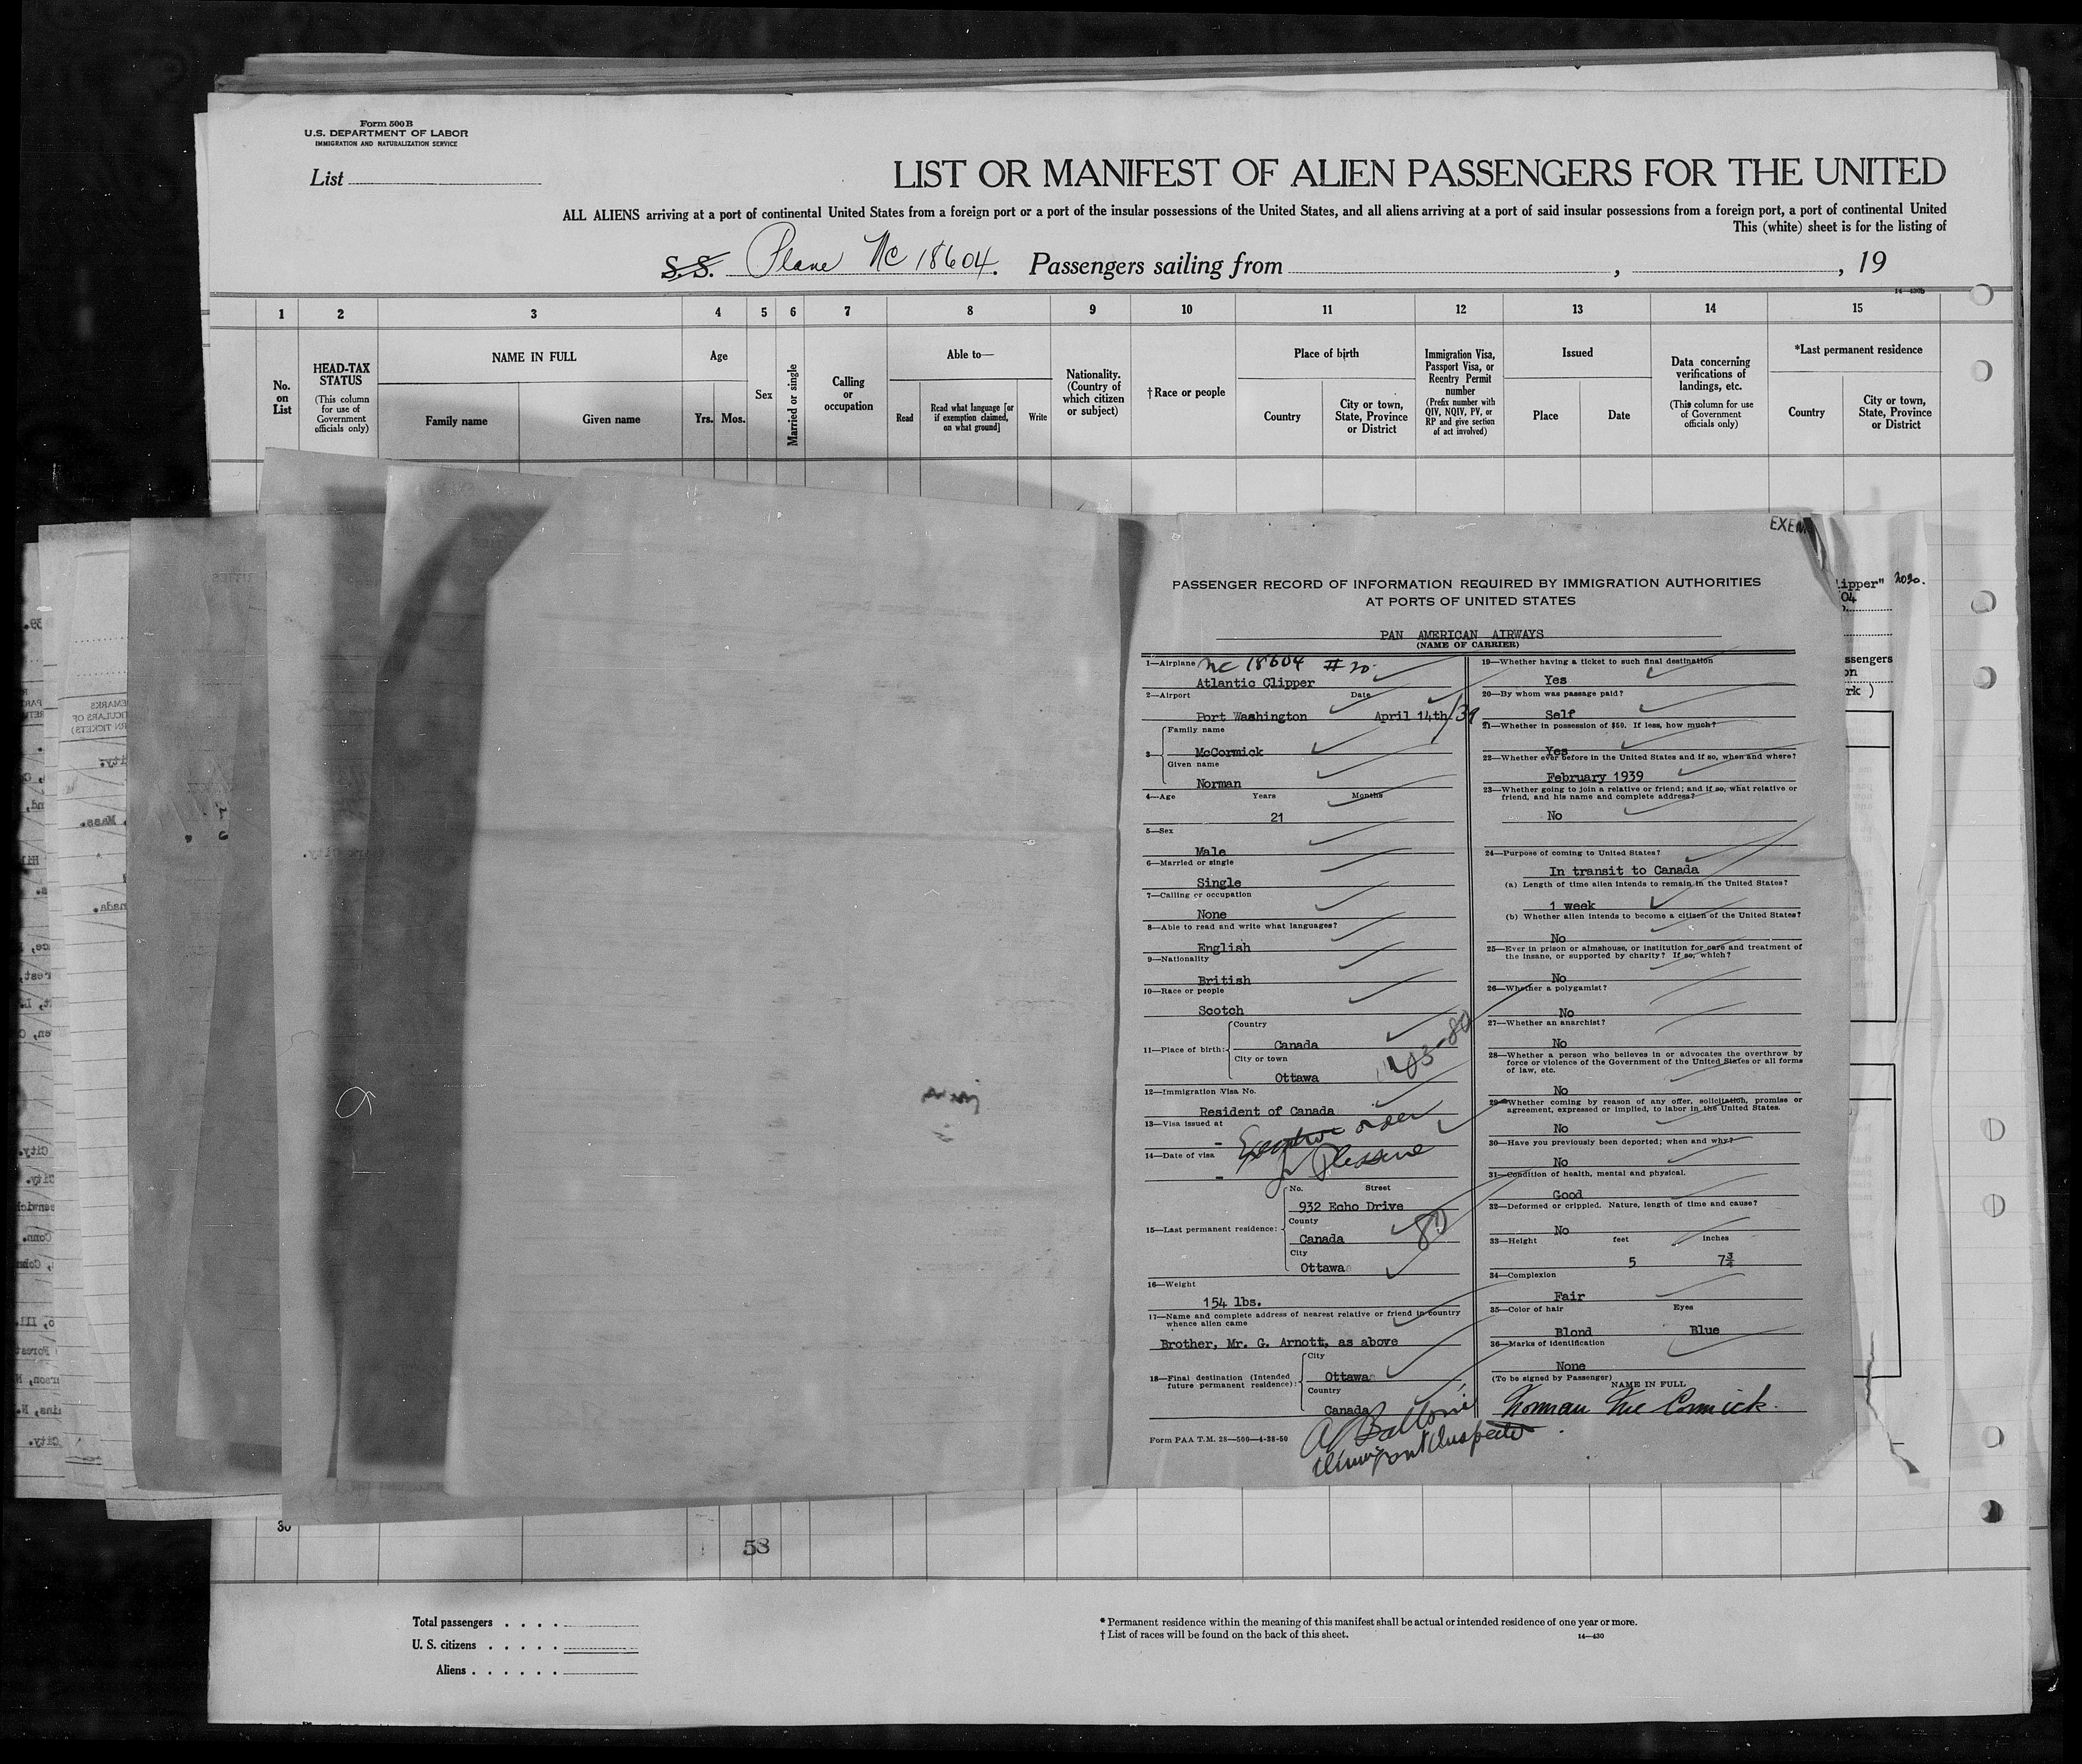 Form 500 B
U.S. DEPARTMENT OF LABOR
IMMIGRATION AND NATURALIZATION SERVICE
List
LIST OR MANIFEST OF ALIEN PASSENGERS FOR THE UNITED
ALL ALIENS arriving at a port of continental United States from a foreign port or a port of the insular possessions of the United States, and all aliens arriving at a port of said insular possessions from a foreign port, a port of continental United
This (white) sheet is for the listing of
S.S. Plane NC 18604. Passengers sailing from , , 19
14—430b
1 2 3 4 5 6 7 8 9 10 11 12 13 14 15
No. on List
HEAD-TAX STATUS
(This column for use of Government officials only)
NAME IN FULL
Family name
Given name
Age
Yrs. Mos.
Sex
Married or single
Calling or occupation
Able to—
Read
Read what language [or if exemption claimed, on what ground]
Write
Nationality. (Country of which citizen or subject)
†Race or people
Place of birth
Country
City or town, State, Province or District
Immigration Visa, Passport Visa, or Reentry Permit number
(Prefix number with QIV, NQIV, PV, or RP and give section of act involved)
Issued
Place
Date
Data concerning verifications of landings, etc.
(This column for use of Government officials only)
*Last permanent residence
Country
City or town, State, Province or District
EXEM
PASSENGER RECORD OF INFORMATION REQUIRED BY IMMIGRATION AUTHORITIES
AT PORTS OF UNITED STATES
PAN AMERICAN AIRWAYS
(NAME OF CARRIER)
1—Airplane NC 18604 #20
Atlantic Clipper
2—Airport Date
Port Washington April 14th/39
3—
Family name
McCormick
Given name
Norman
4—Age Years Months
21
5—Sex
Male
6—Married or single
Single
7—Calling or occupation
None
8—Able to read and write what languages?
English
9—Nationality
British
10—Race or people
Scotch
11—Place of birth:
Country
Canada
City or town
Ottawa
12—Immigration Visa No.
Resident of Canada
13—Visa issued at
-
Executive order
14—Date of visa
-
Pleasure
15—Last permanent residence:
No. Street
932 Echo Drive
County
Canada
80
City
Ottawa
16—Weight
154 lbs.
17—Name and complete address of nearest relative or friend in country
whence alien came
Brother, Mr. G. Arnott, as above
18—Final destination (Intended
future permanent residence):
City
Ottawa
Country
Canada
Form PAA T.M. 28—500—4-28-50
19—Whether having a ticket to such final destination
Yes
20—By whom was passage paid?
Self
21—Whether in possession of $50. If less, how much?
Yes
22—Whether ever before in the United States and if so, when and where?
February 1939
23—Whether going to join a relative or friend; and if so, what relative or
friend, and his name and complete address?
No
24—Purpose of coming to United States?
In transit to Canada
(a) Length of time alien intends to remain in the United States?
1 week
(b) Whether alien intends to become a citizen of the United States?
No
25—Ever in prison or almshouse, or institution for care and treatment of
the insane, or supported by charity? If so, which?
No
26—Whether a polygamist?
No
27—Whether an anarchist?
No
28—Whether a person who believes in or advocates the overthrow by
force or violence of the Government of the United States or all forms
of law, etc.
No
29—Whether coming by reason of any offer, solicitation, promise or
agreement, expressed or implied, to labor in the United States.
No
30—Have you previously been deported; when and why?
No
31—Condition of health, mental and physical.
Good
32—Deformed or crippled. Nature, length of time and cause?
No
33—Height feet inches
5 7¾
34—Complexion
Fair
35—Color of hair Eyes
Blond Blue
36—Marks of identification
None
(To be signed by Passenger)
NAME IN FULL
Norman McCormick.
Immigrant Inspector
lipper"
04
ssengers
on
rk )
30
58
Total passengers
U. S. citizens
Aliens
* Permanent residence within the meaning of this manifest shall be actual or intended residence of one year or more.
† List of races will be found on the back of this sheet.
14—430